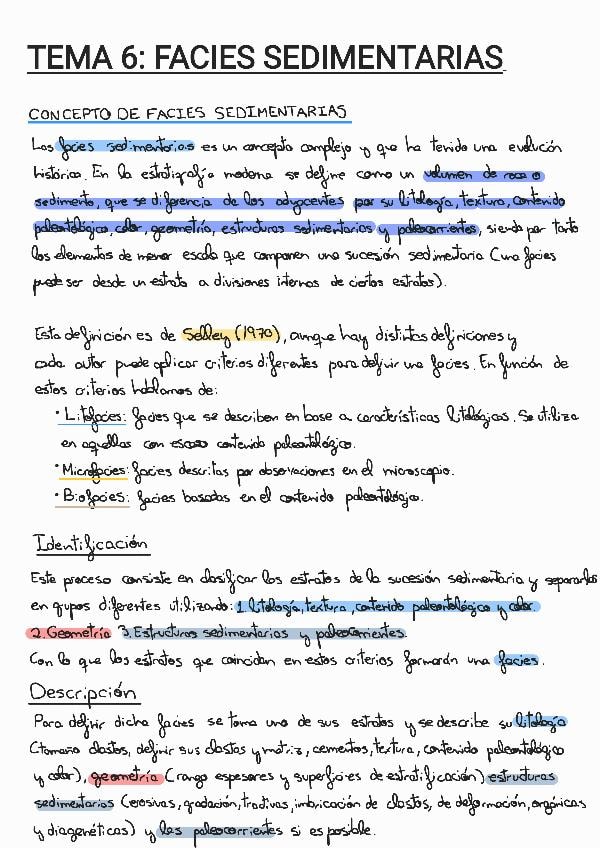 TEMA 6: FACIES SEDIMENTARIAS
CONCEPTO DE FACIES SEDIMENTARIAS
Las facies sedimentarias es un concepto complejo y que ha tenido una evolución
histórica. En la estratigrafía moderna se define como un volumen de roca o
sedimento, que se diferencia de los adyacentes por su litología, textura, contenido
paleontológico, color, geometría, estructuras sedimentarias y paleocorrientes, siendo por tanto
los elementos de menor escala que componen una sucesión sedimentaria (una facies
puede ser desde un estrato a divisiones internas de ciertos estratos).
Esta definición es de Selley (1970), aunque hay distintas definiciones y
cada autor puede aplicar criterios diferentes para definir una facies. En función de
estos criterios hablamos de:
· Litofacies: facies que se describen en base a características litológicas. Se utiliza
en aquellas con escaso contenido paleontológico.
· Microfacies: facies descritas por observaciones en el microscopio.
· Biofacies: facies basadas en el contenido paleontológico.
Identificación
Este proceso consiste en clasificar los estratos de la sucesión sedimentaria y separarlos
en grupos diferentes utilizando: 1. litología, textura, contenido paleontológico y color.
2. Geometría 3. Estructuras sedimentarias y paleocorrientes.
Con lo que los estratos que coincidan en estos criterios formarán una facies.
Descripción
Para definir dicha facies se toma uno de sus estratos y se describe su litología
(tamaño clastos, definir sus clastos y matriz, cementos, textura, contenido paleontológico
y color), geometría (rango espesores y superficies de estratificación) estructuras
sedimentarias (erosivas, gradación, tractivas, imbricación de clastos, de deformación, orgánicas
y diagenéticas) y las paleocorrientes si es posible.